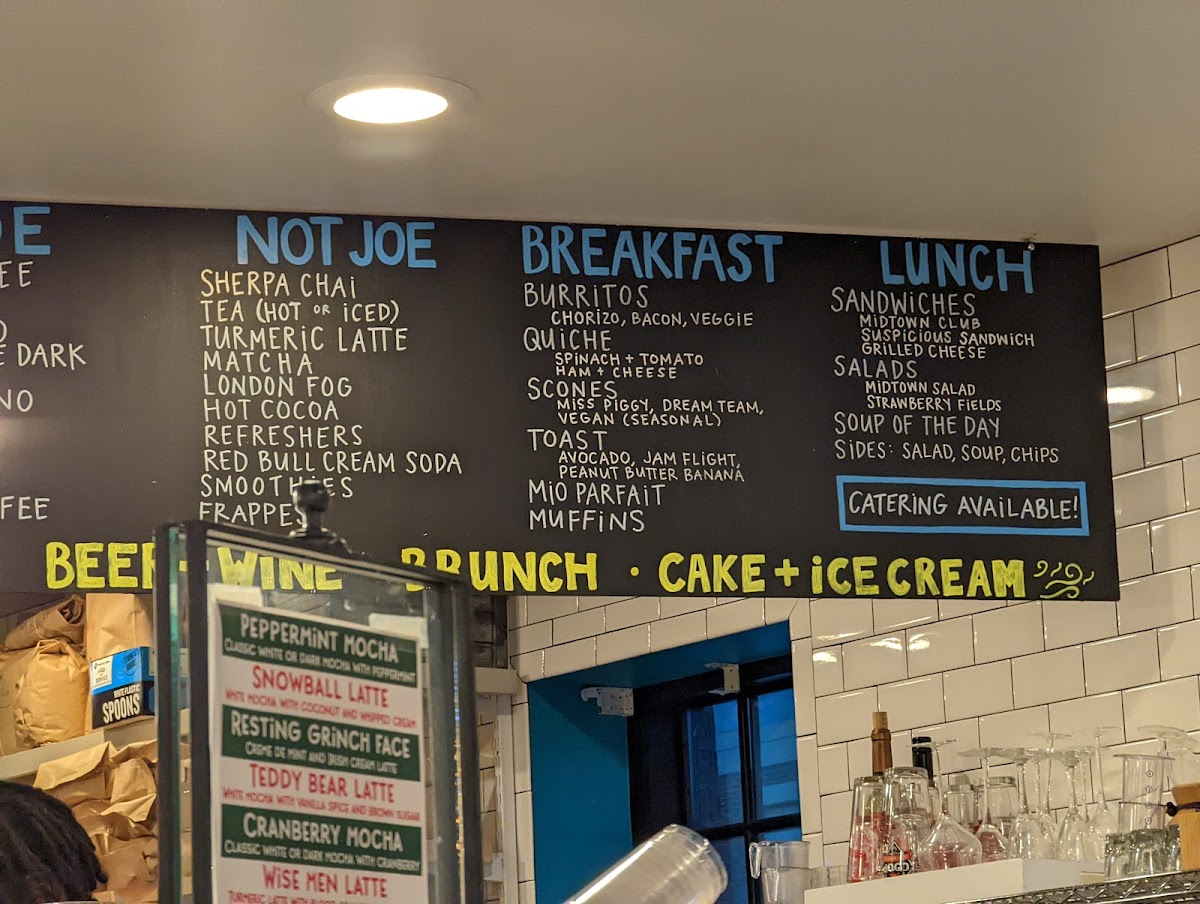 E
EE
DARK
NO
FEE
NOT JOE
SHERPA CHAI
TEA (HOT OR ICED)
TURMERIC LATTE
MATCHA
LONDON FOG
HOT COCOA
REFRESHERS
RED BULL CREAM SODA
SMOOTHIES
FRAPPES
BREAKFAST
BURRITOS
CHORIZO, BACON, VEGGIE
QUICHE
SPINACH + TOMATO
HAM + CHEESE
SCONES
MISS PIGGY, DREAM TEAM,
VEGAN (SEASONAL)
TOAST
AVOCADO, JAM FLIGHT,
PEANUT BUTTER BANANA
MIO PARFAIT
MUFFINS
LUNCH
SANDWICHES
MIDTOWN CLUB
SUSPICIOUS SANDWICH
GRILLED CHEESE
SALADS
MIDTOWN SALAD
STRAWBERRY FIELDS
SOUP OF THE DAY
SIDES: SALAD, SOUP, CHIPS
CATERING AVAILABLE!
BEER + WINE BRUNCH • CAKE + ICE CREAM
PEPPERMINT MOCHA
CLASSIC WHITE OR DARK MOCHA WITH PEPPERMINT
SNOWBALL LATTE
WHITE MOCHA WITH COCONUT AND WHIPPED CREAM
RESTING GRINCH FACE
CREME DE MINT AND IRISH CREAM LATTE
TEDDY BEAR LATTE
WHITE MOCHA WITH VANILLA SPICE AND BROWN SUGAR
CRANBERRY MOCHA
CLASSIC WHITE OR DARK MOCHA WITH CRANBERRY
WISE MEN LATTE
TURMERIC LATTE WITH
WHITE PLASTIC
SPOONS